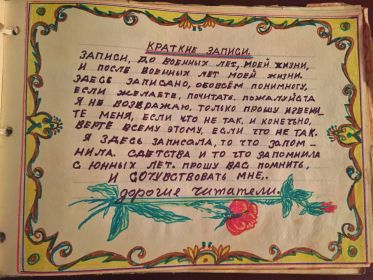 КРАТКИЕ ЗАПИСИ.
ЗАПИСИ, ДО ВОЕННЫХ ЛЕТ, МОЕЙ ЖИЗНИ,
И ПОСЛЕ ВОЕННЫХ ЛЕТ МОЕЙ ЖИЗНИ.
ЗДЕСЬ ЗАПИСАНО, ОБОВСЁМ ПОНИМНОГУ,
ЕСЛИ ЖЕЛАЕТЕ, ПОЧИТАТЬ. ПОЖАЛУЙСТА
Я НЕ ВОЗВРАЖАЮ, ТОЛЬКО ПРОШУ ИЗВЕНИ
ТЕ МЕНЯ, ЕСЛИ ЧТО НЕ ТАК. И КОНЕЧНО,
ВЕРТЕ ВСЕМУ ЭТОМУ, ЕСЛИ ЧТО НЕ ТАК.
Я ЗДЕСЬ ЗАПИСАЛА, ТО ЧТО ЗАПОМ-
НИЛА. СДЕТСТВА И ТО ЧТО ЗАПОМНИЛА
С ЮННЫХ ЛЕТ. ПРОШУ ВАС ПОМНИТЬ,
И СОТУВСТВОВАТЬ МНЕ,.
дорогие читатели.